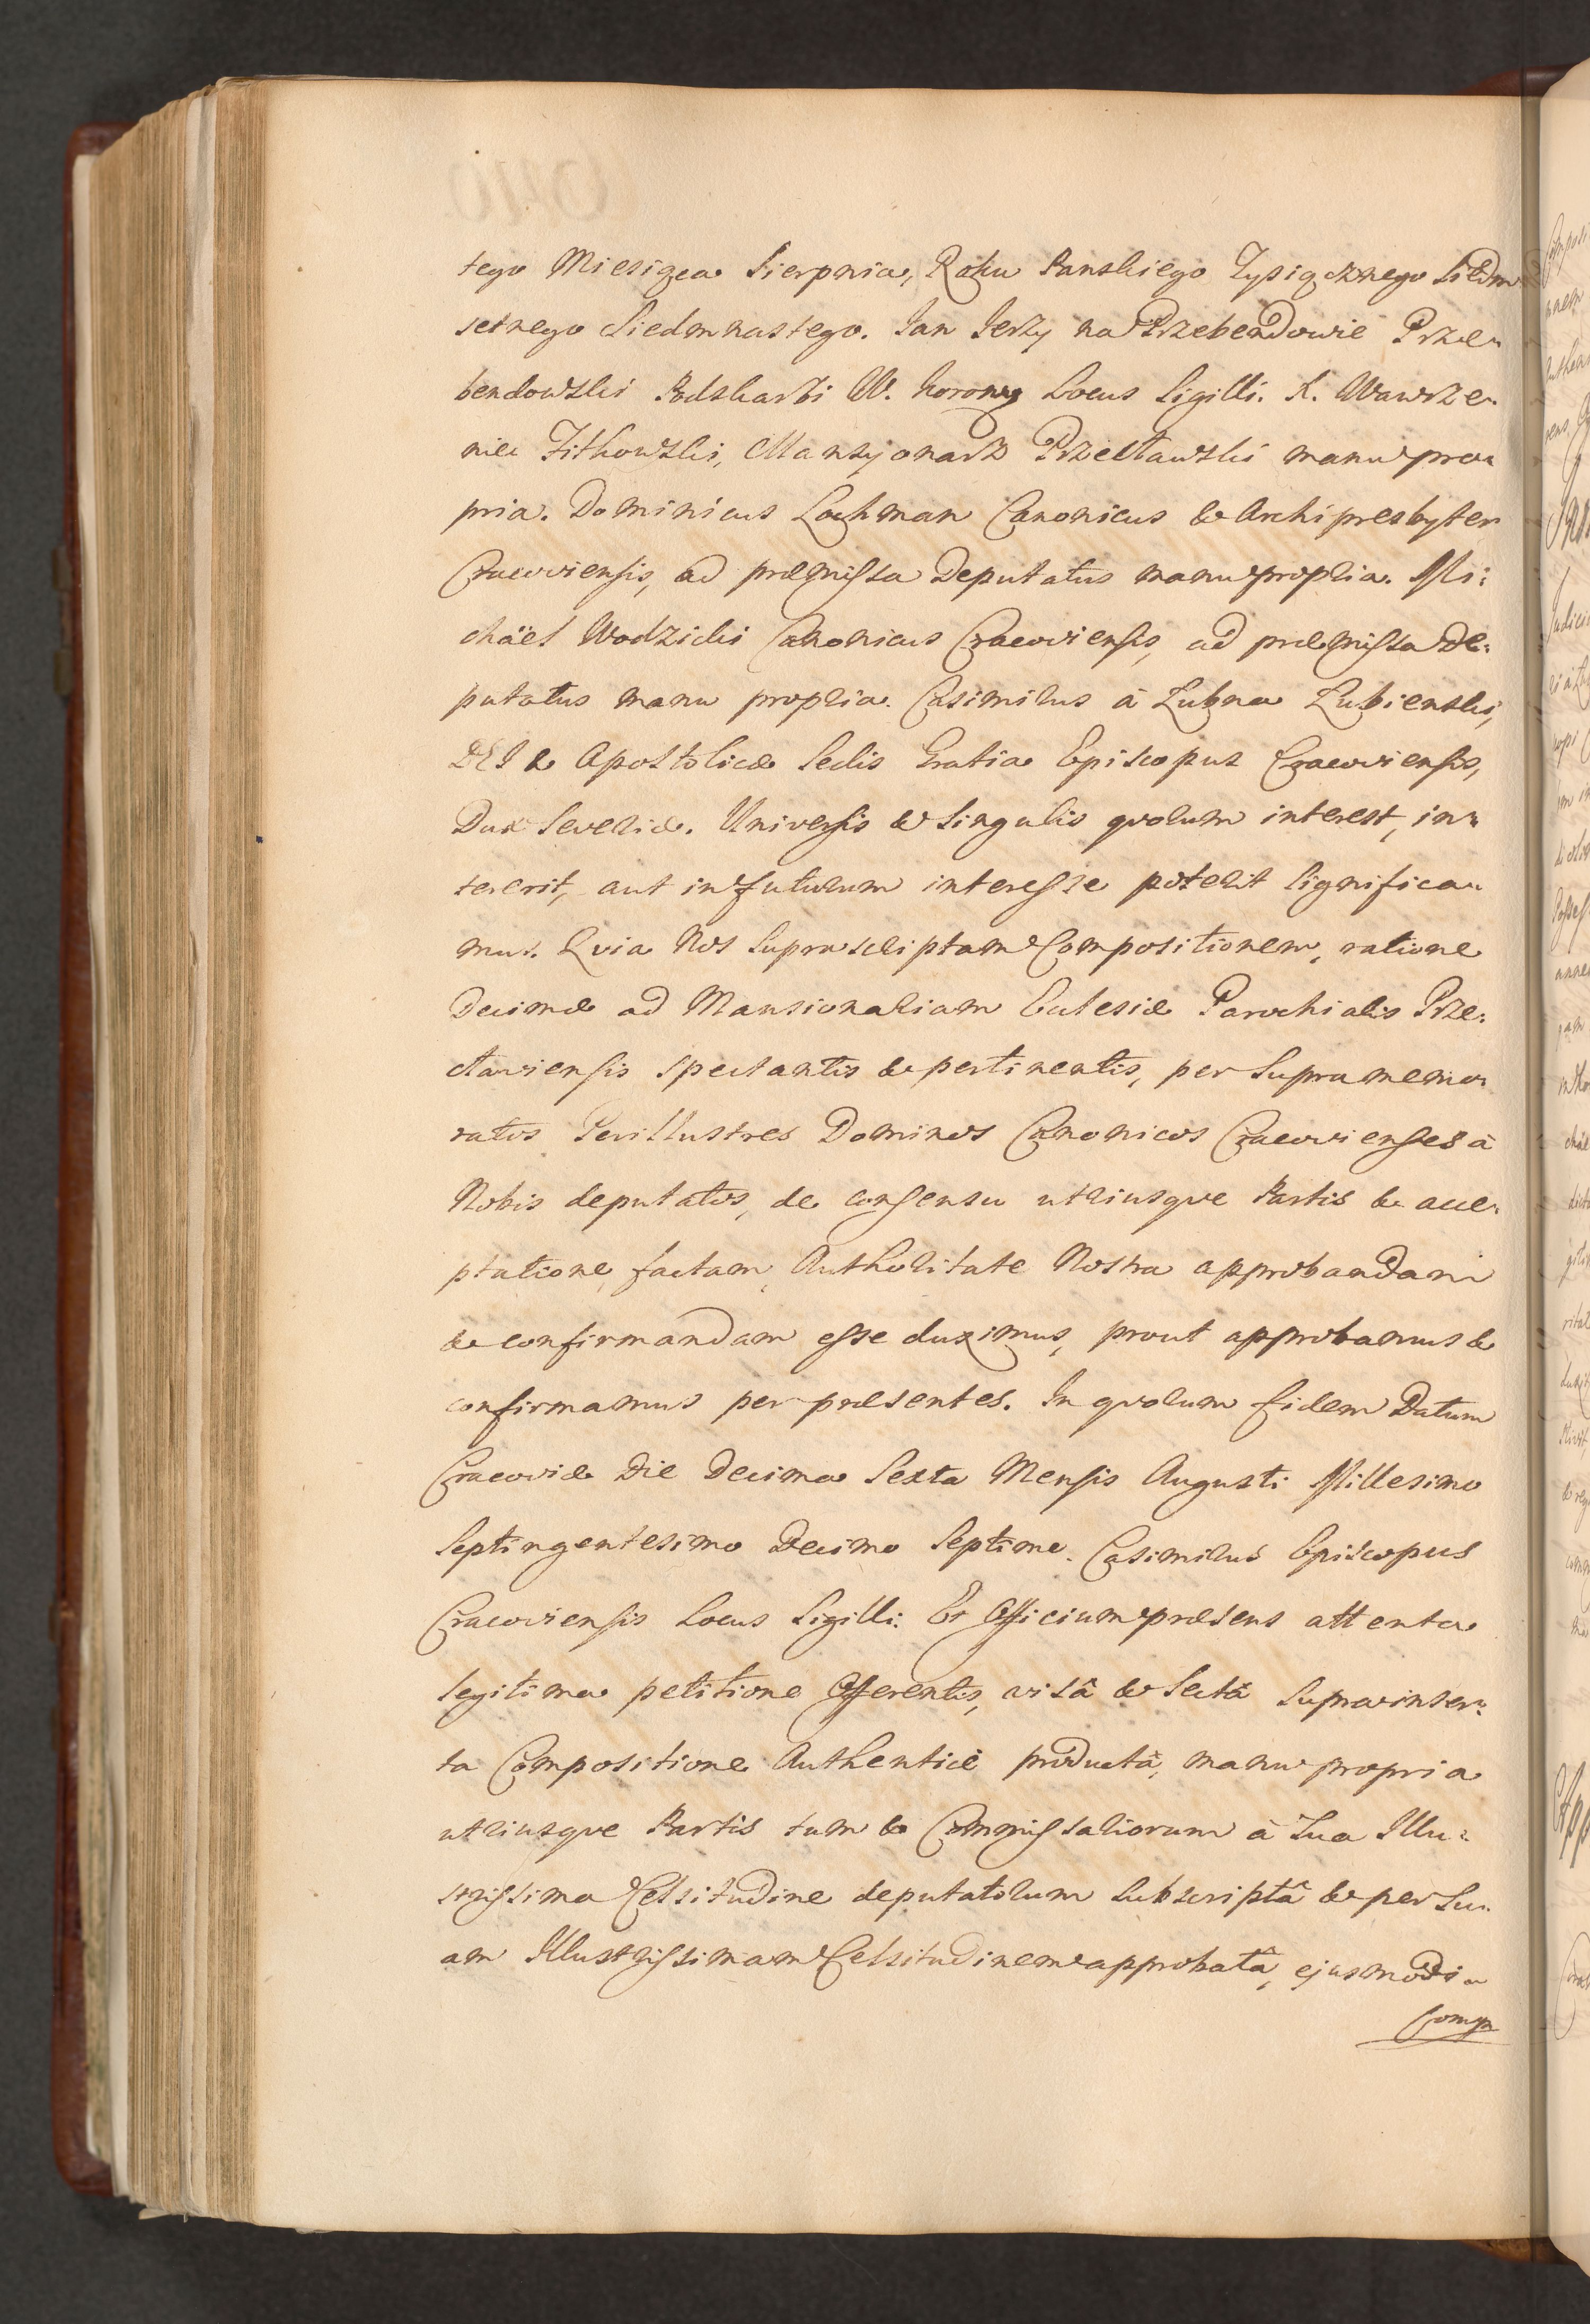 tego Miesiąca Sierpnia, Roku Panskiego Tysiącznego Siedm
setnego Siedmnastego. Jan Jerzy na Przebendowie Prze-
bendowski Podskarbi W. Koronny Locus Sigilli. X. Wawrze-
niec Fitkowski, Mansyonarz Przecławski manu pro-
pria. Dominicus Lochman Canonicus & Archipresbyter
Cracoviensis, ad præmissa Deputatus manu propria. Mi-
chäel Wodzicki Canonicus Cracoviensis, ad præmissa De-
putatus manu propria. Casimirus à Lubna Lubienski,
DEI & Apostolicæ Sedis Gratia Episcopus Cracoviensis,
Dux Severiæ. Universis & Singulis qvorum interest, in-
tererit, aut in futurum interesse poterit Significa-
mus. Qvia Nos Suprascriptam Compositionem, ratione
Decimæ ad Mansionariam Ecclesiæ Parochialis Prze-
claviensis spectantis & pertinentis, per Supra memo-
ratos Perillustres Dominos Canonicos Cracovienses à
Nobis deputatos, de consensu utriusqve Partis & acce-
ptatione factam, Authoritate Nostra approbandam
& confirmandam esse duximus, prout approbamus &
confirmamus per præsentes. In qvorum fidem Datum
Cracoviæ Die Decima Sexta Mensis Augusti Millesimo
Septingentesimo Decimo Septimo. Casimirus Episcopus
Cracoviensis Locus Sigilli. Et Officium præsens attenta
legitima petitione Offerentis, visâ & Lectâ Suprainser-
ta Compositione Authenticè productâ, manu propria
utriusqve Partis tum & Commissariorum à Sua Illu-
strissima Celsitudine deputatorum Subscriptâ & per Su-
am Illustrissimam Celsitudinem approbatâ, ejusmodi
Comp